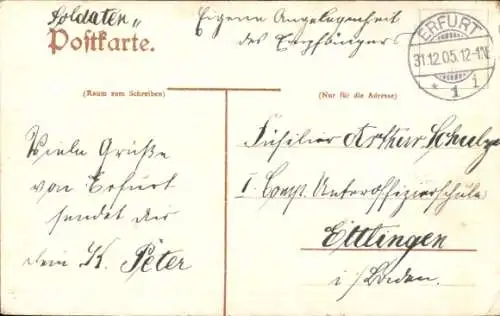 Soldaten „
Postkarte.
Eigene Angelegenheit
des Empfängers
ERFURT
31.12.05.12-1N.
* 1 i
(Raum zum Schreiben)
(Nur für die Adresse)
Viele Grüße
von Erfurt
sendet dir
dein K. Peter
Füsilier Arthur Schulze
I. Comp. Unteroffizierschule
Ettlingen
i/Baden.